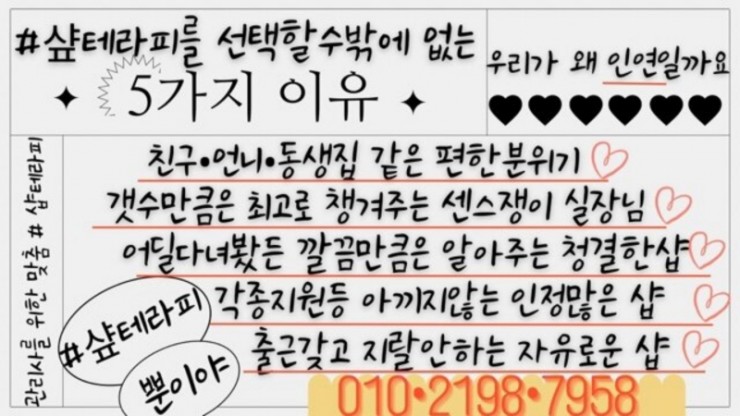 #샾테라피를 선택할수밖에 없는
5가지 이유
우리가 왜 인연일까요
친구•언니•동생집 같은 편한분위기
갯수만큼은 최고로 챙겨주는 센스쟁이 실장님
어딜다녀봤든 깔끔만큼은 알아주는 청결한샵
각종지원등 아끼지않는 인정많은 샵
출근갖고 지랄안하는 자유로운 샵
관리사를 위한 맞춤 # 샵테라피
#샾테라피
뿐이야
010•2198•7958